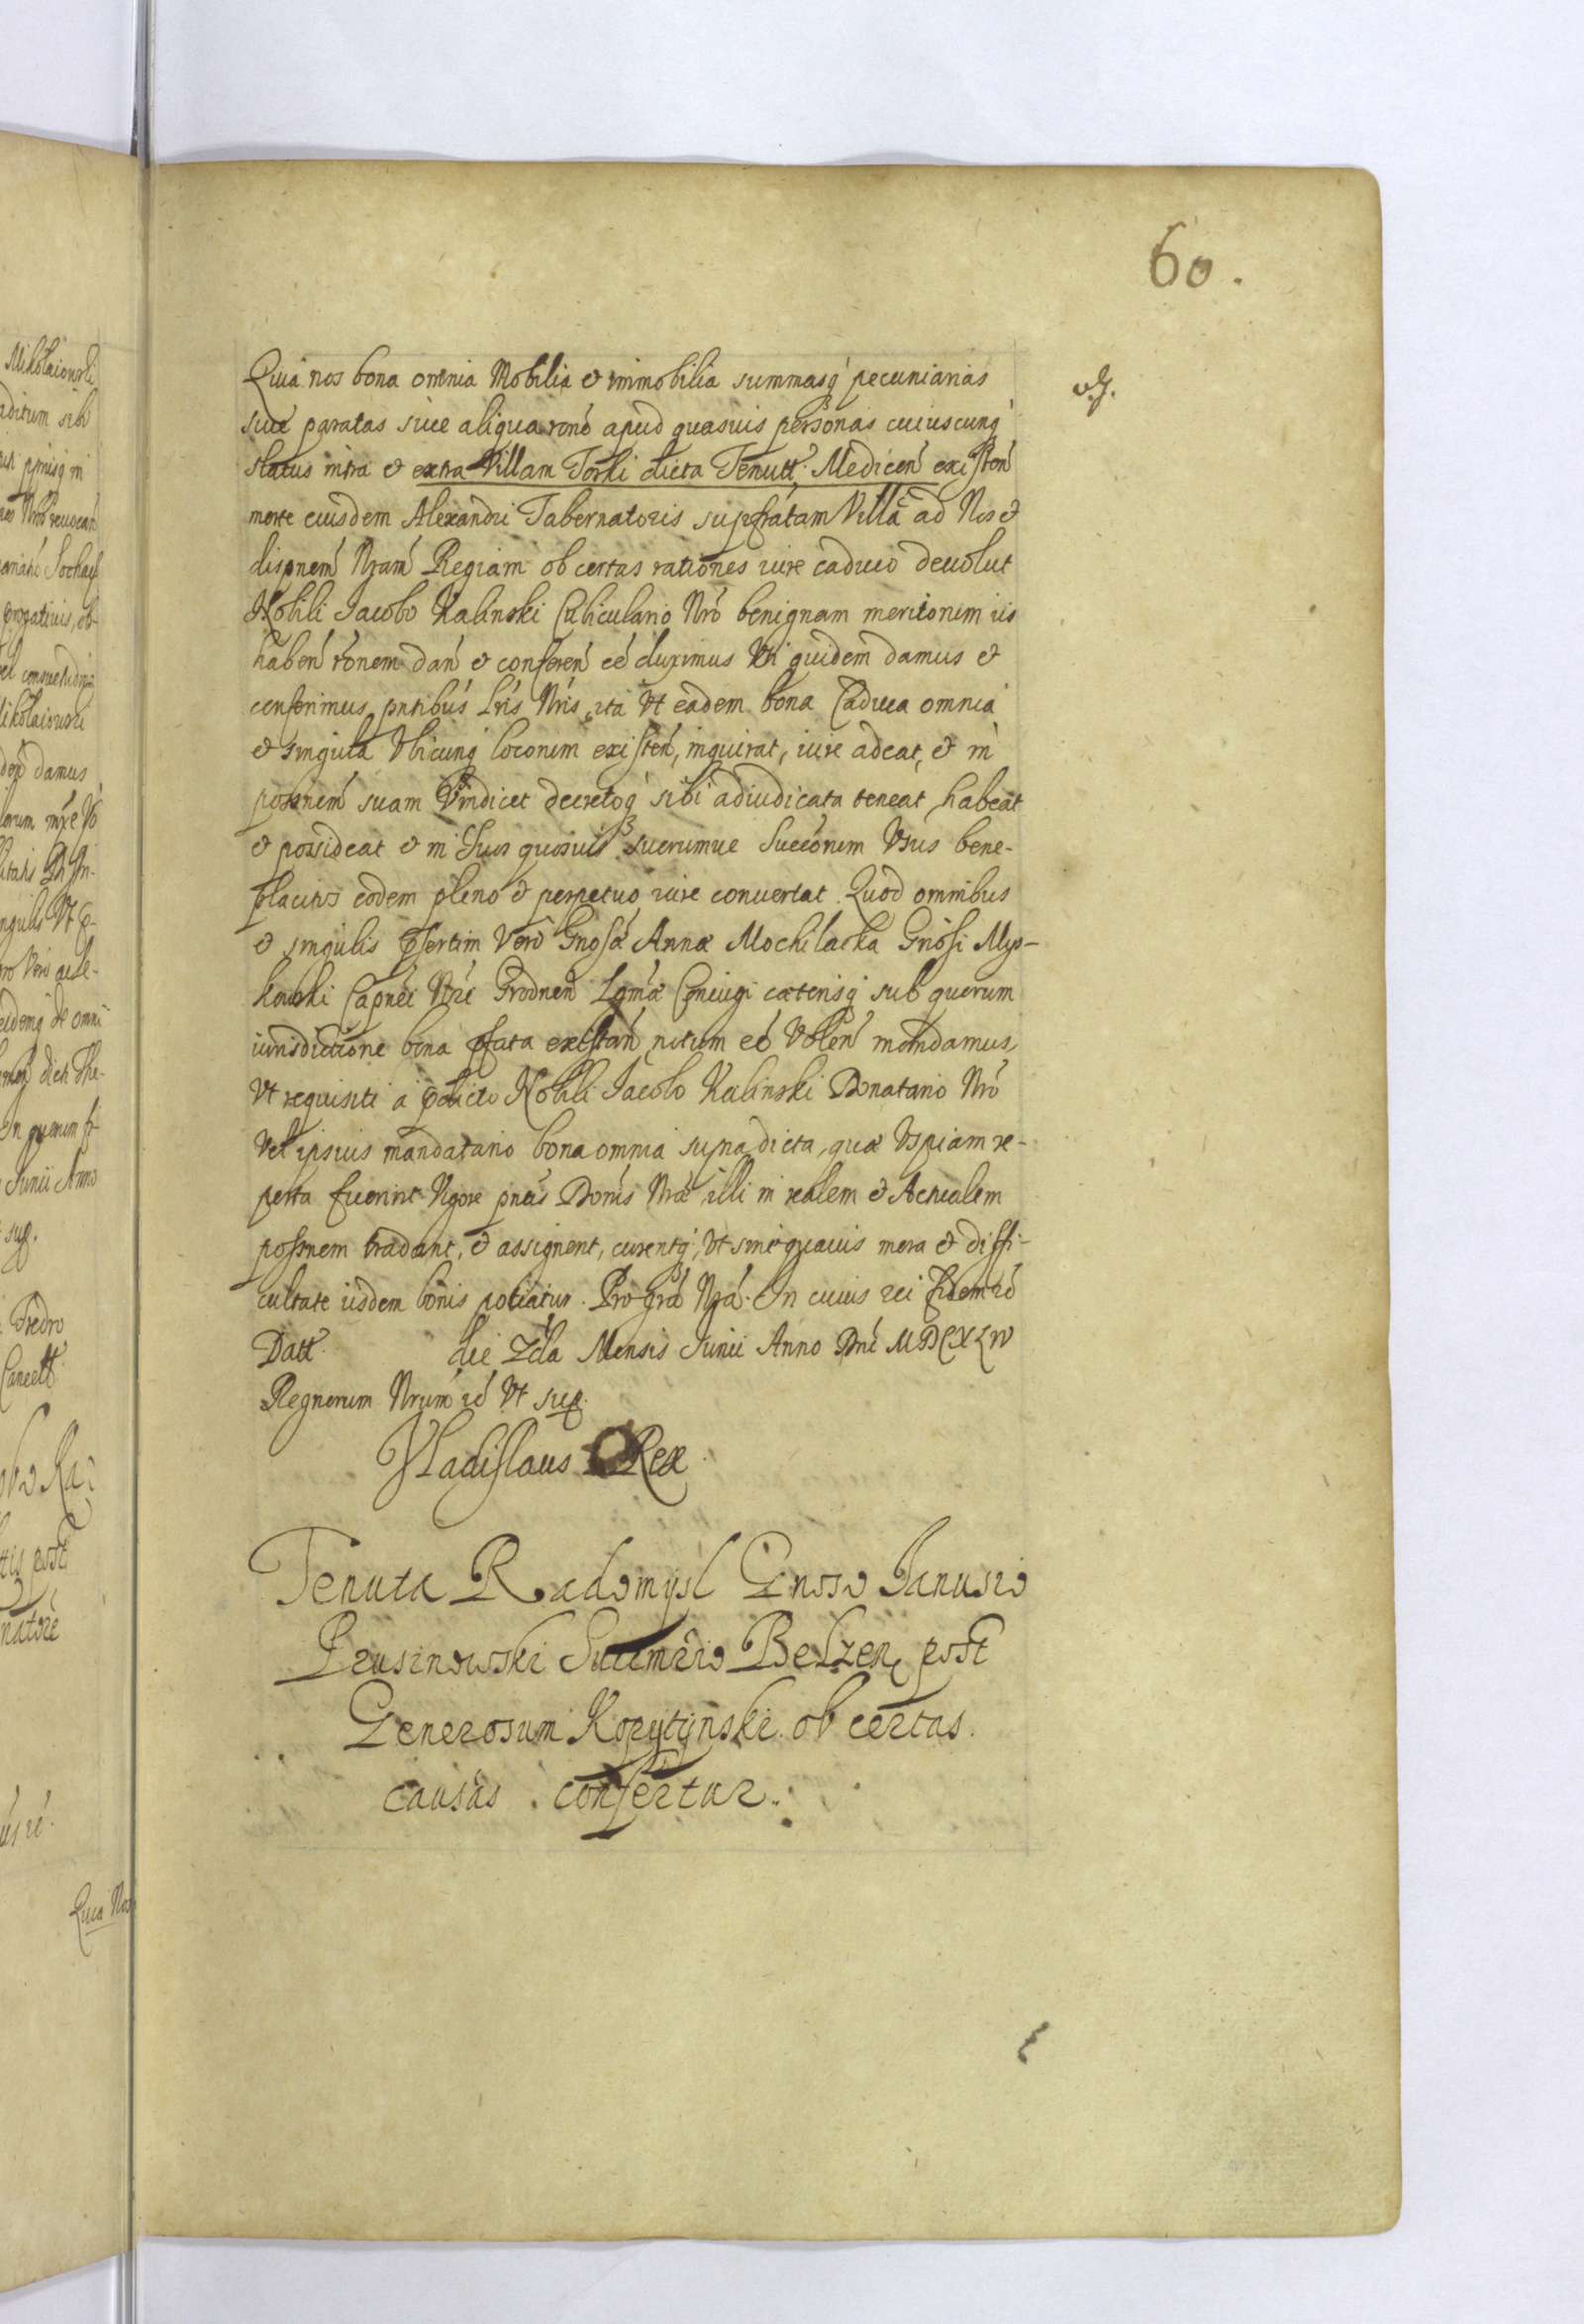 60.
Quia nos bona omnia Mobilia et immobilia summasq́ pecuniarias
siue paratas siue aliqua rone apud quasuis personas cuiuscunq́
status intra et extra Villam Torki dicta Tenutt. Medicen existen
morte eiusdem Alexandri Tabernatoris suprafratam Villa ad Nos et
dispnem Nram Regiam ob certas rationes iure caduco deuolut
Nobili Iacobo Kalinski Cubiculario Nro benignam meritorum iis
haben ronem dan et conferen eé duximus Uti quidem damus et
conferimus pntibus Lris Nris, ita Vt eadem bona Caduca omnia
et singula Vbicunq́ locorum existen, inquirat, iure adeat, et in
possnem suam Vindicet decretoq́ sibi adiudicata teneat habeat
et possideat et in Suos quosuis suorumue Succorum Vsus bene-
placitos eodem pleno et perpetuo iure conuertat. Quod omnibus
et singulis psertim Vero Gnosæ Annæ Mochilacka Gnosi Mys-
kowski Capnei Nri Grodnen Lgmæ Coniugi cæterisq́ sub quorum
iurisdictione bona pfata existan notum eé Volen mandamus,
Vt requisiti á pdicto Nobili Iacobo Kalinski Donatario Nro
Vel ipsius mandatario bona omnia supra dicta, quæ Vspiam re-
perta fuerint Vigore pntis Donis Nræ, illi in realem et Actualem
possnem tradant, et assignent, curentq́, Vt sine quauis mora et diffi-
cultate iisdem bonis potiatur. Pro grâ Nrâ. In cuius rei fidem ré
Datt. die 2da Mensis Iunii Anno Dni MDCXLIV
Regnorum Nrum ré Vt sup.
Vladislaus Rex
Tenuta Radomysl Gnoso Ianusio
Prusinowski Succmrio Belzen post
Generosum Korytynski ob certas
causas confertur.
Quia Nos